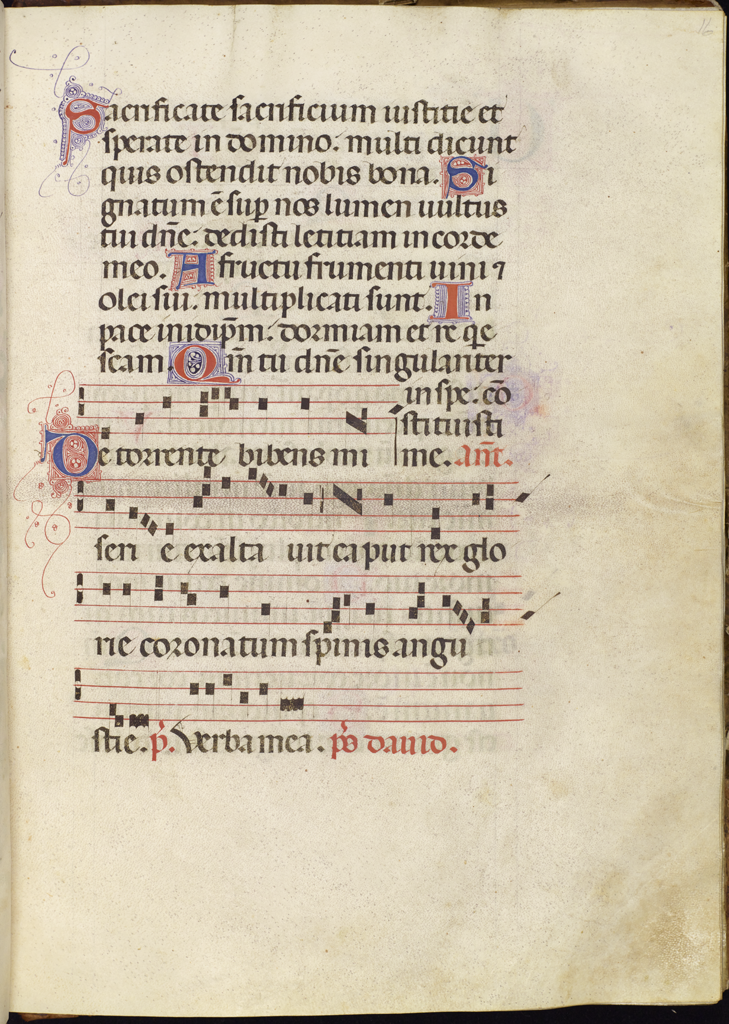 Sacrificate sacrificium iusticie et
sperate in domino. multi dicunt
quis ostendit nobis bona. Si
gnatum ē sup nos lumen uultus
tui dn̄e. dedisti letitiam in corde
meo. A fructu frumenti uini ⁊
olei sui. multiplicati sunt. In
pace in idip̄m. dormiam et re qͥe
scam Qm̄ tu dn̄e singulariter
in spe. cō
stituisti
me. ant̄.
De torrente bibens mi
seri e exalta uit caput rex glo
rie coronatum spinis angu
stie. p̄. Verba mea. p̄s dauid.
16